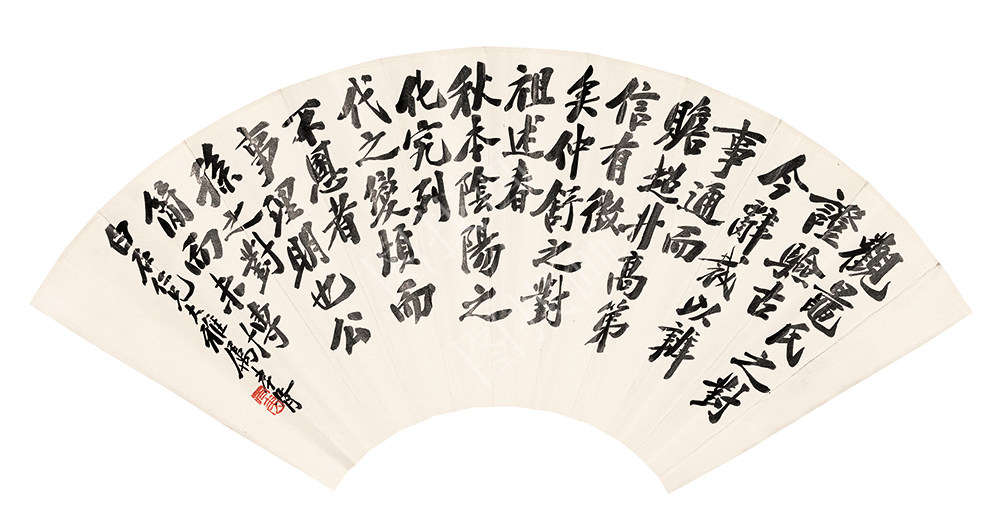 觀鼂氏之對
證驗古
今辭裁以辨
事通而
贍超升高第
信有徵
矣仲舒之對
祖述春
秋本陰陽之
化究列
代之變煩而
不慁者
事理明也公
孫之對
簡而未博
白石仁兄大雅屬 孝胥